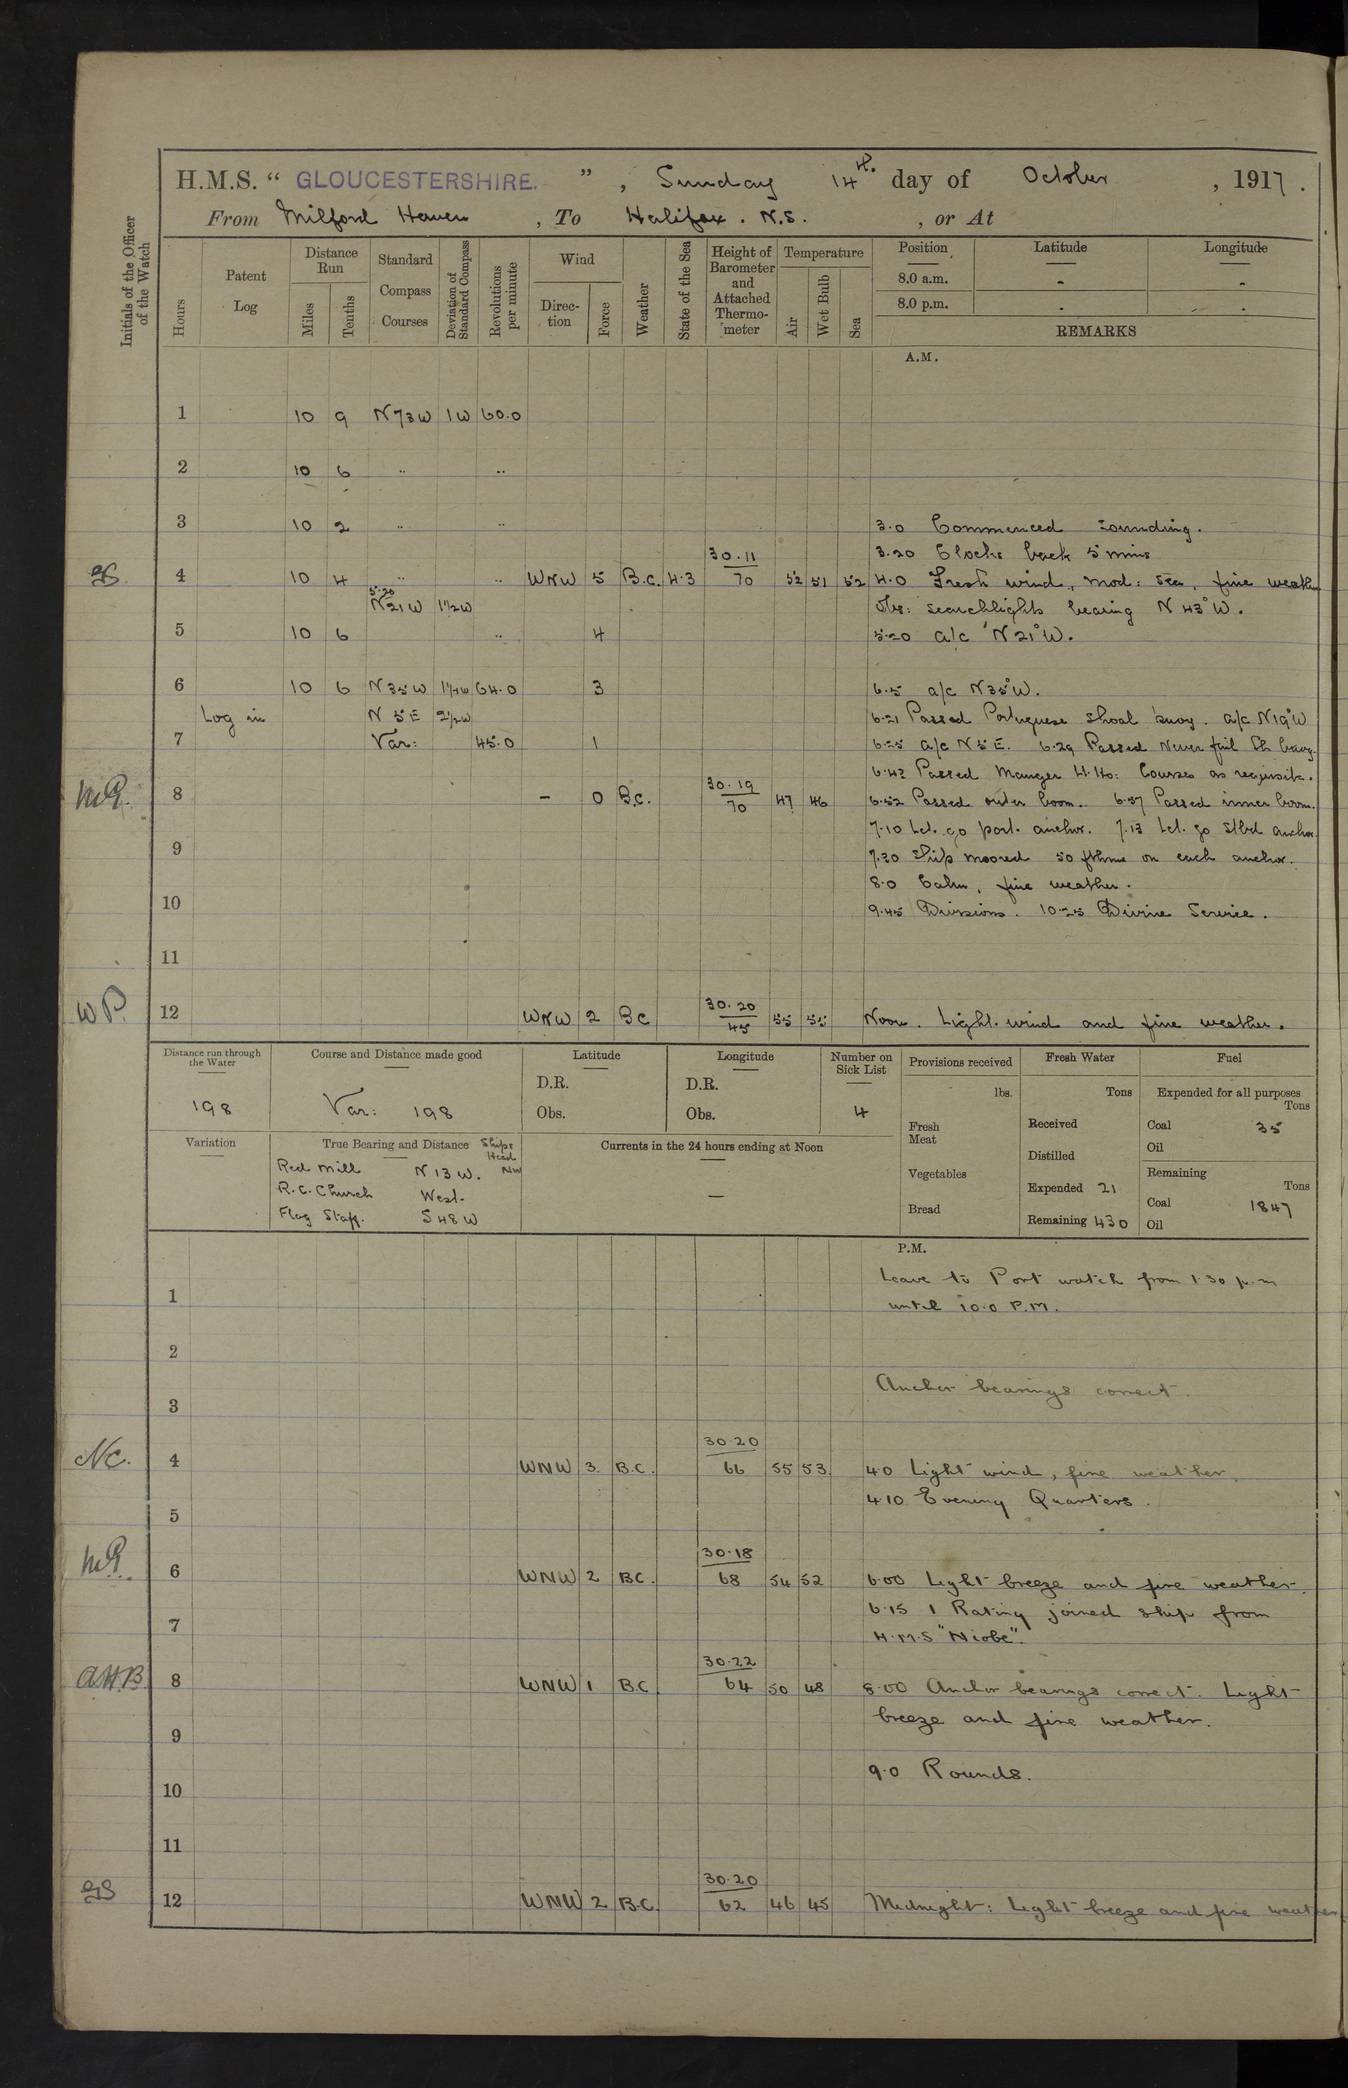 H.M.S. " GLOUCESTERSHIRE. " , Sunday 14th. day of October , 1917 .
From Milford Haven , To Halifax . N.S. , or At
Initials of the Officer of the Watch
Hours
Patent Log
Distance Run
Miles
Tenths
Standard Compass Courses
Deviation of Standard Compass
Revolutions per minute
Wind
Direc-tion
Force
Weather
State of the Sea
Height of Barometer and Attached Thermo-meter
Temperature
Air
Wet Bulb
Sea
Position Latitude Longitude
8.0 a.m. - -
8.0 p.m. . .
REMARKS
A.M.
1 10 9 N73W 1W 60.0
2 10 6 .. ..
3 10 2 .. .. 3.0 Commenced sounding.
30.11 3.20 Clocks back 5 mins
4 10 4 .. .. WNW 5 B.C. 4.3 70 52 51 52 4.0 Fresh wind, mod: sea, fine weather
5.20 N21W 1½W Obs: searchlights bearing N 43° W.
5 10 6 .. 4 5.20 a/c N 21° W.
6 10 6 N35W 1½W 64.0 3 6.5 a/c N35°W.
Log in N 5 E 2½W 6.21 Passed Portuguese Shoal buoy. a/c N19°W
7 Var: 45.0 1 6.25 a/c N 5 E. 6.29 Passed Never fail Sh buoy.
6.43 Passed Mauger Lt. Ho: Courses as requisite.
M.P. 8 - 0 B.C. 30.19 70 47 46 6.52 Passed outer boom. 6.57 Passed inner boom.
7.10 Let go port anchor. 7.13 Let go Stbd anchor.
9 7.30 Ship moored 50 fthms on each anchor.
8.0 Calm, fine weather.
10 9.45 Divisions. 10.25 Divine Service.
11
W P. 12 WNW 2 BC 30.20 45 55 55 Noon. Light wind and fine weather.
Distance run through the Water
198
Course and Distance made good
Var: 198
Latitude
D.R.
Obs.
Longitude
D.R.
Obs.
Number on Sick List
4
Provisions received
lbs.
Fresh Meat
Vegetables
Bread
Fresh Water
Tons
Received
Distilled
Expended 21
Remaining 430
Fuel
Expended for all purposes
Tons
Coal 35
Oil
Remaining
Tons
Coal 1847
Oil
Variation
True Bearing and Distance Ships Head NW
Red Mill N 13 W.
R.C. Church West.
Flag Staff. S 48 W
Currents in the 24 hours ending at Noon
—
P.M.
Leave to Port watch from 1.30 p.m
1 until 10.0 P.M.
2
Anchor bearings correct.
3
30.20
NC. 4 WNW 3. B.C. 66 55 53 4.0 Light wind, fine weather.
4.10 Evening Quarters.
5
30.18
M.P. 6 WNW 2 BC. 68 54 52 6.00 Light breeze and fine weather.
6.15 1 Rating joined ship from
7 H.M.S "Niobe".
30.22
A.H.B. 8 WNW 1 B.C. 64 50 48 8.00 Anchor bearings correct. Light
breeze and fine weather.
9
9.0 Rounds.
10
11
30.20
12 WNW 2 B.C. 62 46 45 Midnight: Light breeze and fine weather.